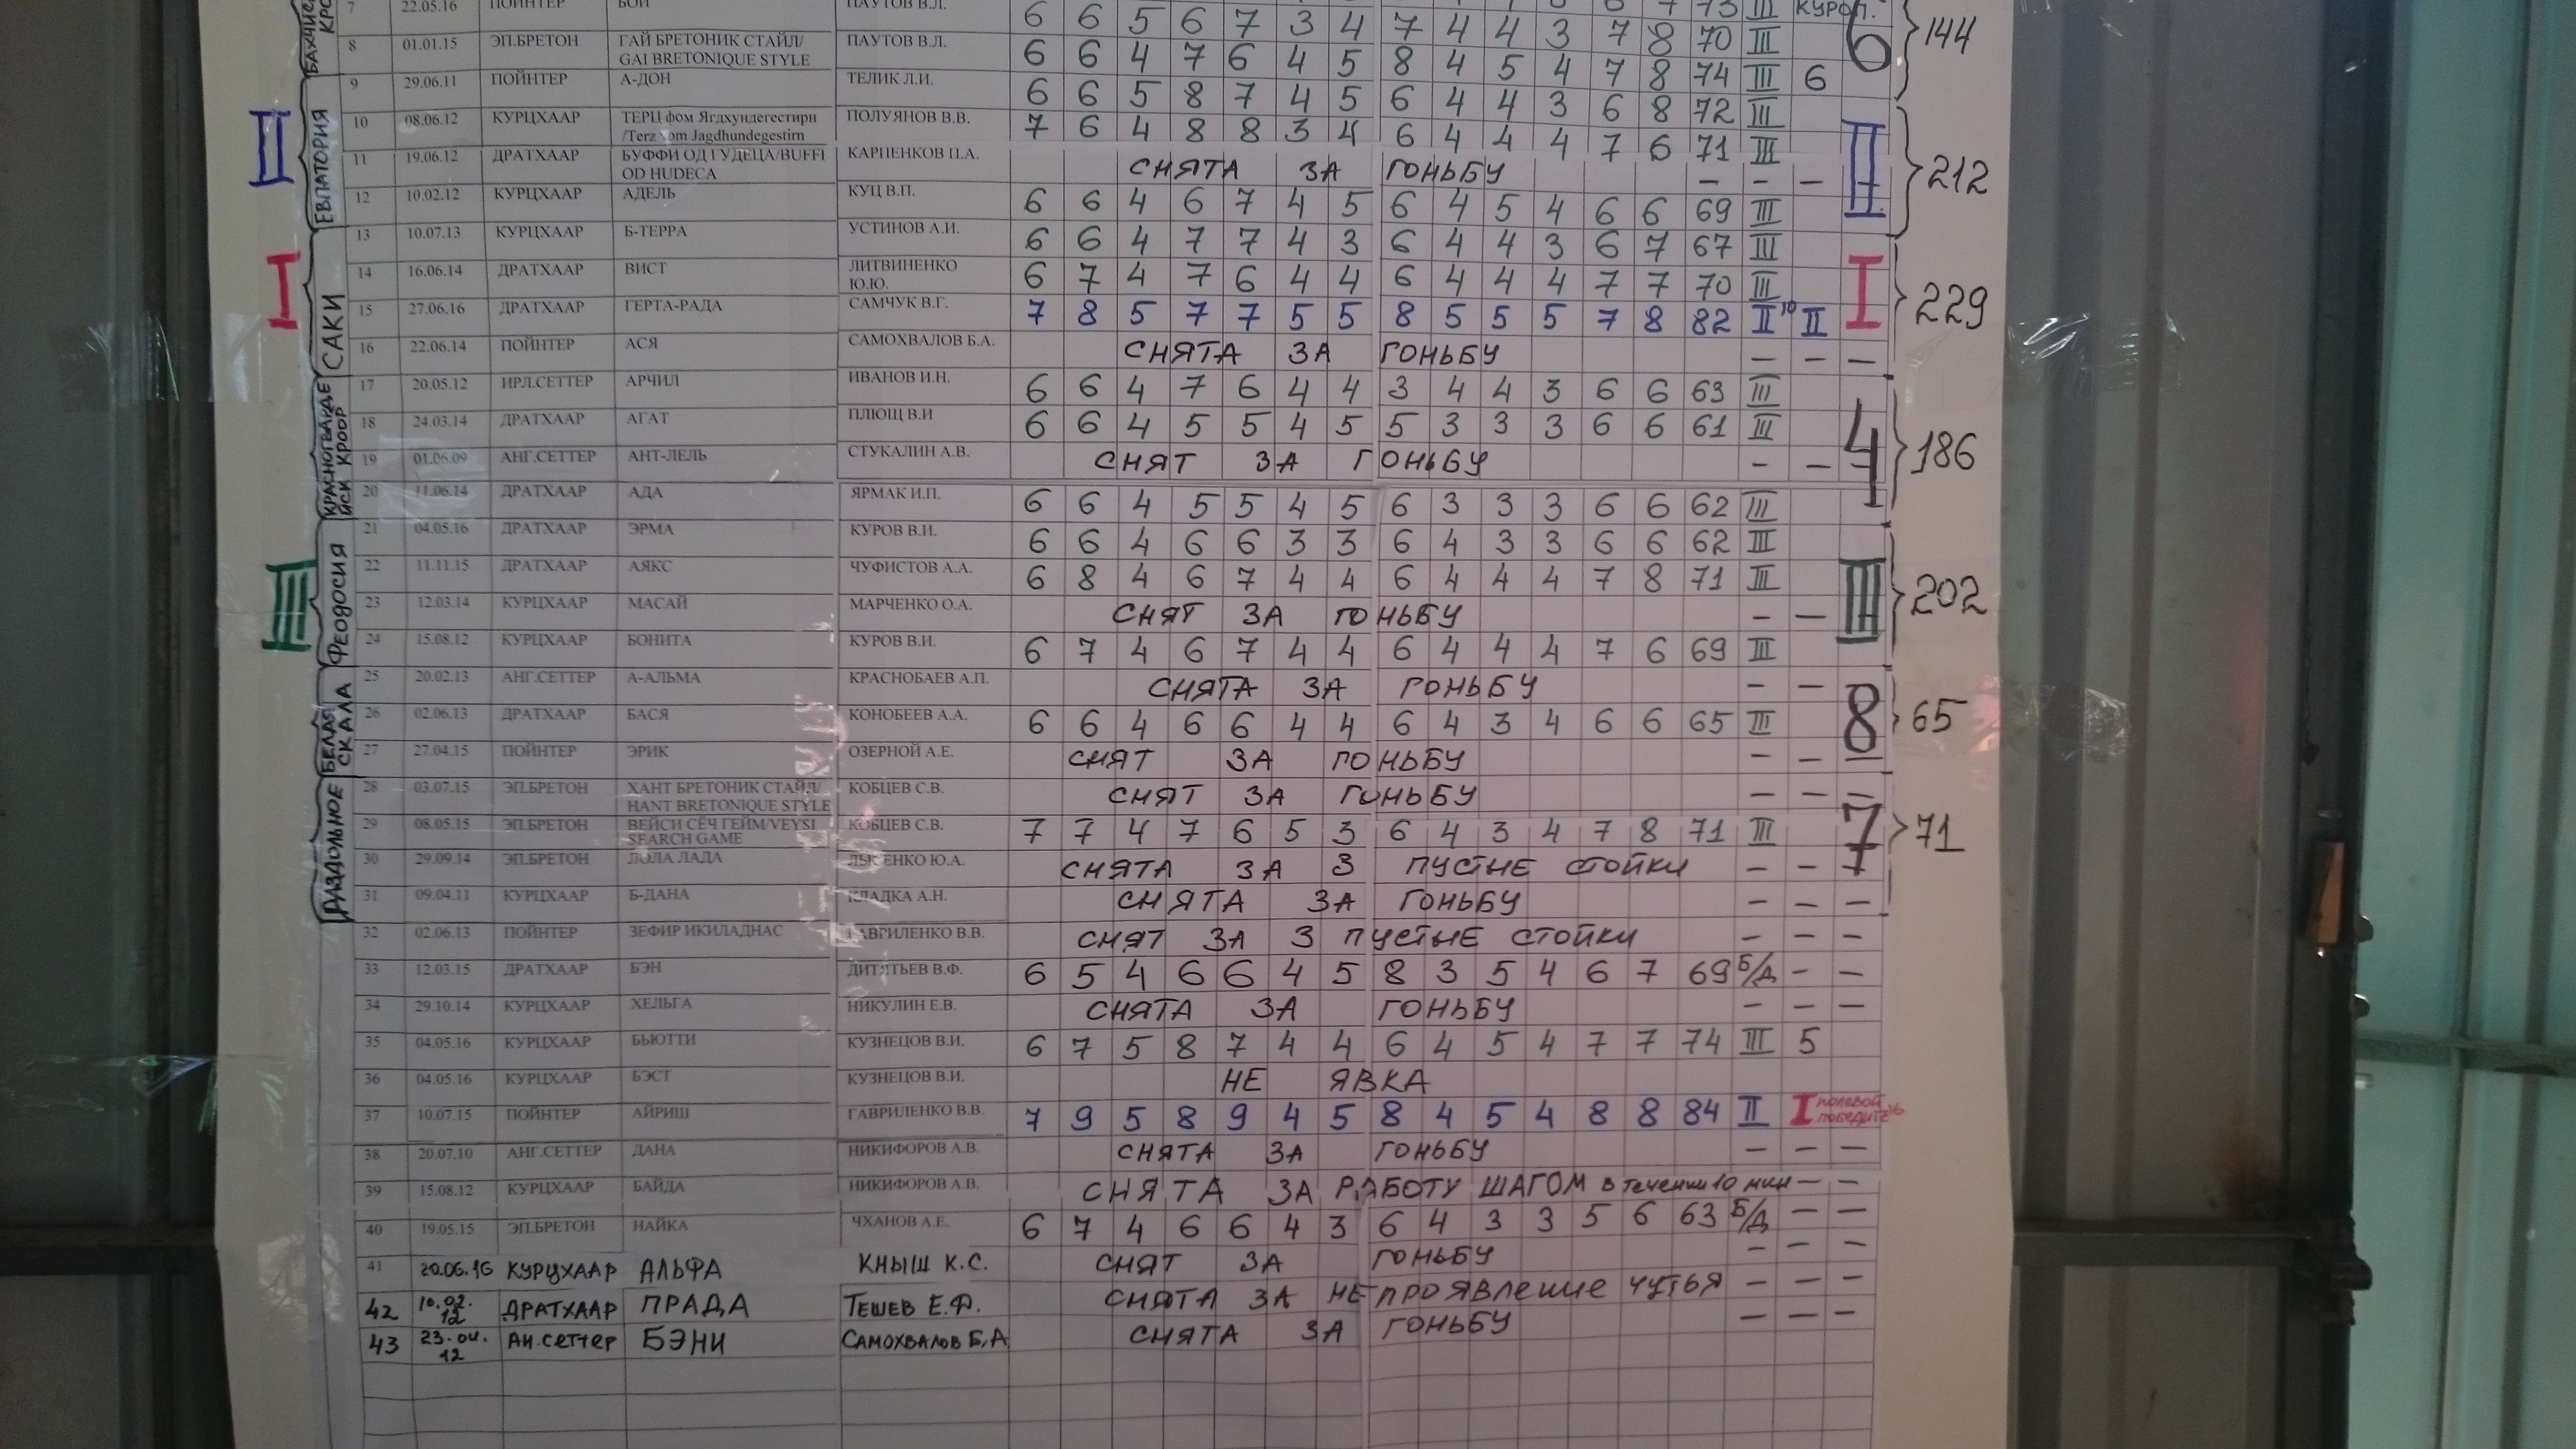 7 22.05.16 ПОЙНТЕР БОЙ ПАУТОВ В.Л. 73 III КУРОП.
8 01.01.15 ЭП.БРЕТОН ГАЙ БРЕТОНИК СТАЙЛ/ ПАУТОВ В.Л. 6 6 5 6 7 3 4 7 4 4 3 7 8 70 III 6 144
GAI BRETONIQUE STYLE
9 29.06.11 ПОЙНТЕР А-ДОН ТЕЛИК Л.И. 6 6 4 7 6 4 5 8 4 5 4 7 8 74 III 6
10 08.06.12 КУРЦХААР ТЕРЦ фом Ягдхундегестирн ПОЛУЯНОВ В.В. 6 6 5 8 7 4 5 6 4 4 3 6 8 72 III
/Terz vom Jagdhundegestirn
7 6 4 8 8 3 4 6 4 4 4 7 6 71 III
II ЕВПАТОРИЯ II 212
11 19.06.12 ДРАТХААР БУФФИ ОД ГУДЕЦА/BUFFI КАРПЕНКОВ П.А. СНЯТА ЗА ГОНЬБУ – – – –
OD HUDECA
12 10.02.12 КУРЦХААР АДЕЛЬ КУЦ В.П. 6 6 4 6 7 4 5 6 4 5 4 6 6 69 III
13 10.07.13 КУРЦХААР Б-ТЕРРА УСТИНОВ А.И. 6 6 4 7 7 4 3 6 4 4 3 6 7 67 III
14 16.06.14 ДРАТХААР ВИСТ ЛИТВИНЕНКО 6 7 4 7 6 4 4 6 4 4 4 7 7 70 III
Ю.Ю.
I САКИ I 229
15 27.06.16 ДРАТХААР ГЕРТА-РАДА САМЧУК В.Г. 7 8 5 7 7 5 5 8 5 5 5 7 8 82 II II
16 22.06.14 ПОЙНТЕР АСЯ САМОХВАЛОВ Б.А. СНЯТА ЗА ГОНЬБУ – – –
17 20.05.12 ИРЛ.СЕТТЕР АРЧИЛ ИВАНОВ И.Н. 6 6 4 7 6 4 4 3 4 4 3 6 6 63 III
18 24.03.14 ДРАТХААР АГАТ ПЛЮЩ В.И 6 6 4 5 5 4 5 5 3 3 3 6 6 61 III
КРАСНОГВАРДЕ
ЙСК КРООР 4 186
19 01.06.09 АНГ.СЕТТЕР АНТ-ЛЕЛЬ СТУКАЛИН А.В. СНЯТ ЗА ГОНЬБУ – – –
20 11.06.14 ДРАТХААР АДА ЯРМАК И.П. 6 6 4 5 5 4 5 6 3 3 3 6 6 62 III
21 04.05.16 ДРАТХААР ЭРМА КУРОВ В.И. 6 6 4 6 6 3 3 6 4 3 3 6 6 62 III
22 11.11.15 ДРАТХААР АЯКС ЧУФИСТОВ А.А. 6 8 4 6 7 4 4 6 4 4 4 7 8 71 III
III ФЕОДОСИЯ III 202
23 12.03.14 КУРЦХААР МАСАЙ МАРЧЕНКО О.А. СНЯТ ЗА ГОНЬБУ – –
24 15.08.12 КУРЦХААР БОНИТА КУРОВ В.И. 6 7 4 6 7 4 4 6 4 4 4 7 6 69 III
25 20.02.13 АНГ.СЕТТЕР А-АЛЬМА КРАСНОБАЕВ А.П. СНЯТА ЗА ГОНЬБУ – –
26 02.06.13 ДРАТХААР БАСЯ КОНОБЕЕВ А.А. 6 6 4 6 6 4 4 6 4 3 4 6 6 65 III
БЕЛАЯ
СКАЛА 8 65
27 27.04.15 ПОЙНТЕР ЭРИК ОЗЕРНОЙ А.Е. СНЯТ ЗА ГОНЬБУ – – –
28 03.07.15 ЭП.БРЕТОН ХАНТ БРЕТОНИК СТАЙЛ/ КОБЦЕВ С.В. СНЯТ ЗА ГОНЬБУ – – –
HANT BRETONIQUE STYLE
29 08.05.15 ЭП.БРЕТОН ВЕЙСИ СЁЧ ГЕЙМ/VEYSI КОБЦЕВ С.В. 7 7 4 7 6 5 3 6 4 3 4 7 8 71 III
SEARCH GAME
РАЗДОЛЬНОЕ 7 71
30 29.09.14 ЭП.БРЕТОН ЛОЛА ЛАДА Ю.А. СНЯТА ЗА 3 ПУСТЫЕ СТОЙКИ – –
31 09.04.11 КУРЦХААР Б-ДАНА КЛАДКА А.Н. СНЯТА ЗА ГОНЬБУ – – –
32 02.06.13 ПОЙНТЕР ЗЕФИР ИКИЛАДНАС ГАВРИЛЕНКО В.В. СНЯТ ЗА 3 ПУСТЫЕ СТОЙКИ – – –
33 12.03.15 ДРАТХААР БЭН ДИТЯТЬЕВ В.Ф. 6 5 4 6 6 4 5 8 3 5 4 6 7 69 Б/Д – –
34 29.10.14 КУРЦХААР ХЕЛЬГА НИКУЛИН Е.В. СНЯТА ЗА ГОНЬБУ – – –
35 04.05.16 КУРЦХААР БЬЮТТИ КУЗНЕЦОВ В.И. 6 7 5 8 7 4 4 6 4 5 4 7 7 74 III 5
36 04.05.16 КУРЦХААР БЭСТ КУЗНЕЦОВ В.И. НЕ ЯВКА
37 10.07.15 ПОЙНТЕР АЙРИШ ГАВРИЛЕНКО В.В. 7 9 5 8 9 4 5 8 4 5 4 8 8 84 II I ПОЛЕВОЙ
38 20.07.10 АНГ.СЕТТЕР ДАНА НИКИФОРОВ А.В. СНЯТА ЗА ГОНЬБУ – – –
39 15.08.12 КУРЦХААР БАЙДА НИКИФОРОВ А.В. СНЯТА ЗА РАБОТУ ШАГОМ в течении 10 мин – –
40 19.05.15 ЭП.БРЕТОН НАЙКА ЧХАНОВ А.Е. 6 7 4 6 6 4 3 6 4 3 3 5 6 63 Б/Д – –
41 20.06.16 КУРЦХААР АЛЬФА КНЫШ К.С. СНЯТ ЗА ГОНЬБУ – – –
42 10.02.12 ДРАТХААР ПРАДА ТЕШЕВ Е.Ф. СНЯТА ЗА НЕПРОЯВЛЕНИЕ ЧУТЬЯ – – –
43 23.04.12 АН.СЕТТЕР БЭНИ САМОХВАЛОВ Б.А СНЯТА ЗА ГОНЬБУ – – –